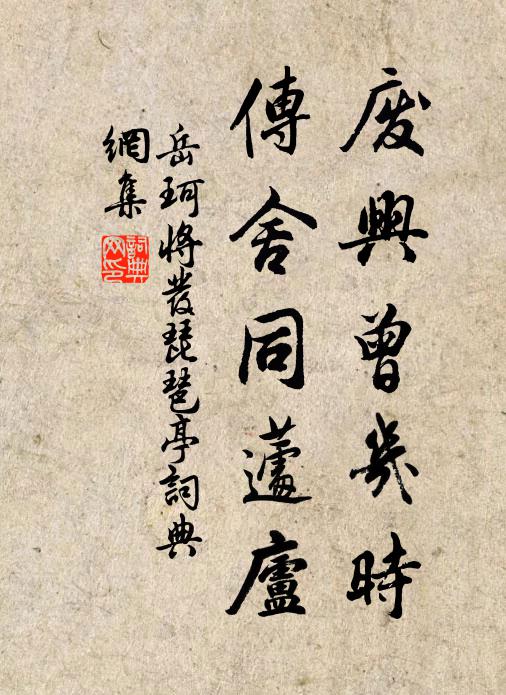 廢興曾幾時
傳舍同蘧廬
岳珂將發琵琶亭詞典
網集
詞典
网印